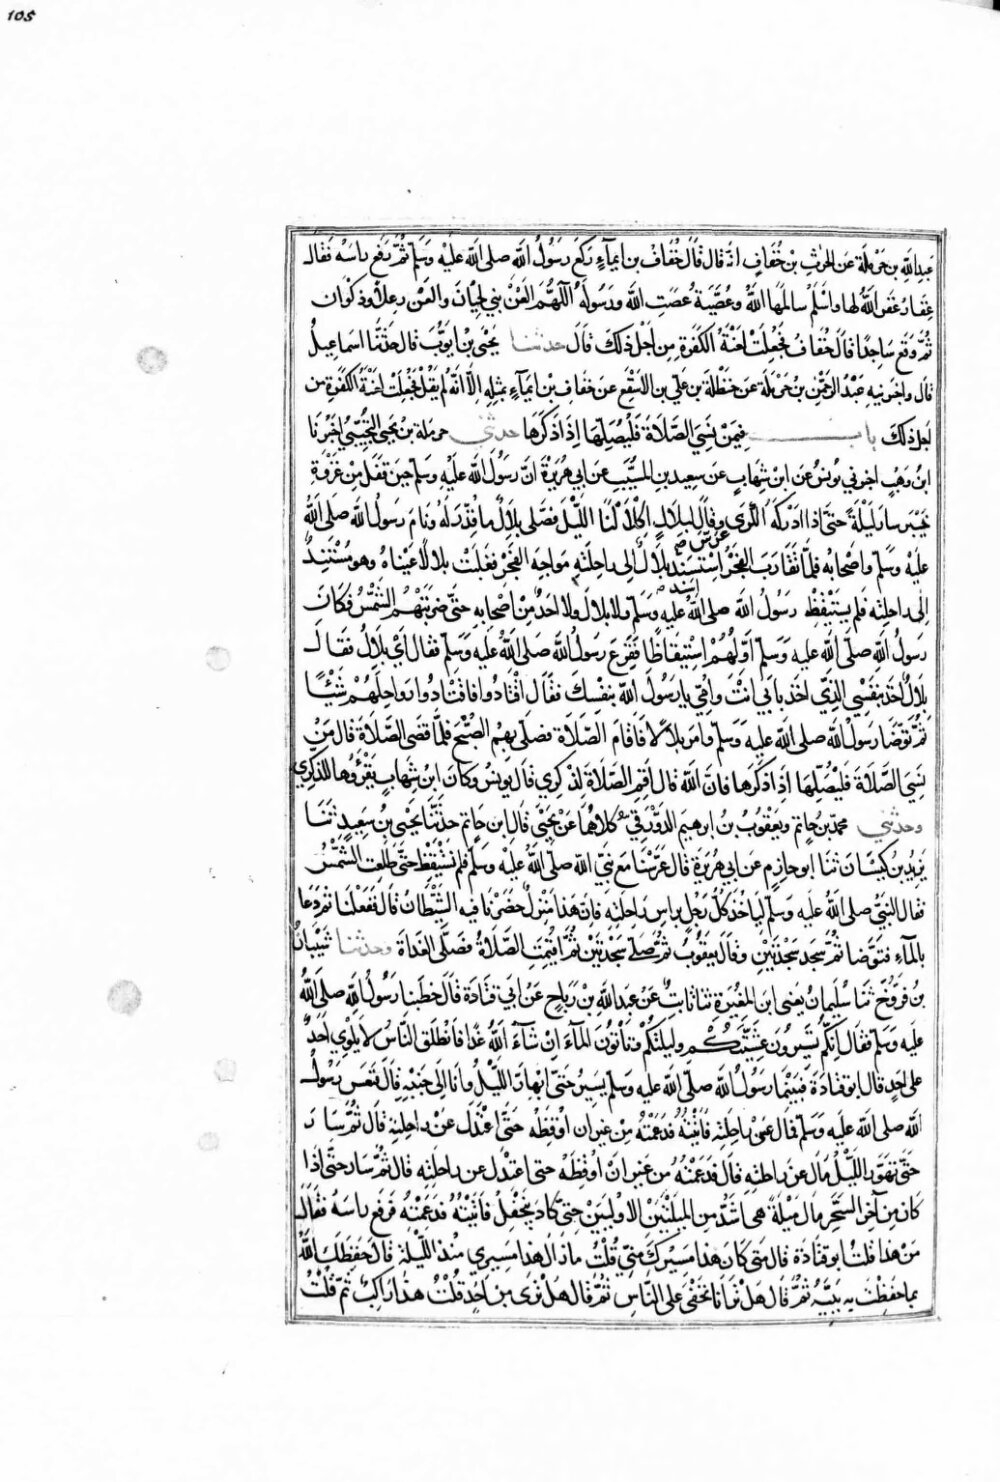 105
عبد الله بن حرملة عن الحرث بن خفاف انه قال قال خفاف بن ايماء ركع رسول الله صلى الله عليه وسلم ثم رفع راسه فقال
غفار غفر الله لها واسلم سالمها الله وعصية عصت الله ورسوله اللهم العن بني لحيان والعن رعلا وذكوان
ثم وقع ساجدا قال خفاف فجعلت لعنة الكفرة من اجل ذلك قال حدثنا يحيى بن ايوب قال حدثنا اسماعيل
قال واخبرنيه عبد الرحمن بن حرملة عن حنظلة بن علي بن الاسقع عن خفاف بن ايماء بمثله الا انه لم يقل فجعلت لعنة الكفرة من
اجل ذلك باب فيمن نسي الصلاة فليصلها اذا ذكرها حدثني حرملة بن يحيى التجيبي اخبرنا
ابن وهب اخبرني يونس عن ابن شهاب عن سعيد بن المسيب عن ابي هريرة ان رسول الله صلى الله عليه وسلم حين قفل من غزوة
خيبر سار ليلة حتى اذا ادركه الكرى وقال لبلال اكلأ لنا الليل فصلى بلال ما قدر له ونام رسول الله صلى الله
عرس
عليه وسلم واصحابه فلما تقارب الفجر استسند بلال الى راحلته مواجه الفجر فغلبت بلالا عيناه وهو مستند
اسند
الى راحلته فلم يستيقظ رسول الله صلى الله عليه وسلم ولا بلال ولا احد من اصحابه حتى ضربتهم الشمس فكان
رسول الله صلى الله عليه وسلم اولهم استيقاظا ففزع رسول الله صلى الله عليه وسلم فقال اي بلال فقال
بلال اخذ بنفسي الذي اخذ بابي انت وامي يا رسول الله بنفسك فقال اقتادوا فاقتادوا رواحلهم شيئا
ثم توضا رسول الله صلى الله عليه وسلم وامر بلالا فاقام الصلاة فصلى بهم الصبح فلما قضى الصلاة قال من
نسي الصلاة فليصلها اذا ذكرها فان الله قال اقم الصلاة لذكري قال يونس وكان ابن شهاب يقرؤها للذكرى
وحدثني محمد بن حاتم ويعقوب بن ابرهيم الدورقي كلاهما عن يحيى قال ابن حاتم حدثنا يحيى بن سعيد ثنا
يزيد بن كيسان ثنا ابو حازم عن ابي هريرة قال عرسنا مع نبي الله صلى الله عليه وسلم فلم نستيقظ حتى طلعت الشمس
فقال النبي صلى الله عليه وسلم لياخذ كل رجل براس راحلته فان هذا منزل حضرنا فيه الشيطان قال ففعلنا ثم دعا
بالماء فتوضا ثم سجد سجدتين وقال يعقوب ثم صلى سجدتين ثم اقيمت الصلاة فصلى الغداة وحدثنا شيبان
بن فروخ ثنا سليمان يعني ابن المغيرة ثنا ثابت عن عبد الله بن رباح عن ابي قتادة قال خطبنا رسول الله صلى الله
عليه وسلم فقال انكم تسيرون عشيتكم وليلتكم وتاتون الماء ان شاء الله غدا فانطلق الناس لا يلوي احد
على احد قال ابو قتادة فبينما رسول الله صلى الله عليه وسلم يسير حتى ابهار الليل وانا الى جنبه قال فنعس رسول
الله صلى الله عليه وسلم فمال عن راحلته فاتيته فدعمته من غير ان اوقظه حتى اعتدل عن راحلته قال ثم سار
حتى تهور الليل مال عن راحلته قال فدعمته من غير ان اوقظه حتى اعتدل عن راحلته قال ثم سار حتى اذا
كان من آخر السحر مال ميلة هي اشد من الميلتين الاوليين حتى كاد ينجفل فاتيته فدعمته فرفع راسه فقال
من هذا قلت ابو قتادة قال متى كان هذا مسيرك مني قلت ما زال هذا مسيري منذ الليلة قال حفظك الله
بما حفظت به نبيه ثم قال هل ترانا نخفى على الناس ثم قال هل ترى من احد قلت هذا راكب ثم قلت